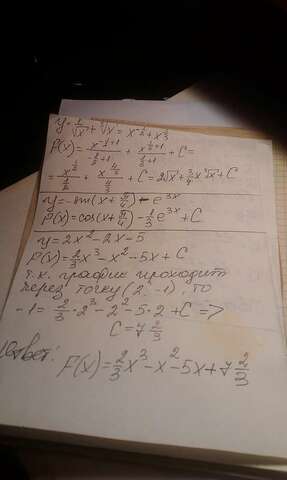 y = 1/√x + ³√x = x^(-1/2) + x^(1/3)
F(x) = x^(-1/2+1)/(-1/2+1) + x^(1/3+1)/(1/3+1) + C =
= x^(1/2)/(1/2) + x^(4/3)/(4/3) + C = 2√x + 3/4 x ³√x + C
y = -sin(x + π/4) - e^(3x)
F(x) = cos(x + π/4) - 1/3 e^(3x) + C
y = 2x² - 2x - 5
F(x) = 2/3 x³ - x² - 5x + C
т.к. график проходит
через точку (2; -1), то
-1 = 2/3 · 2³ - 2² - 5·2 + C =>
C = 7 2/3
Ответ:
F(x) = 2/3 x³ - x² - 5x + 7 2/3